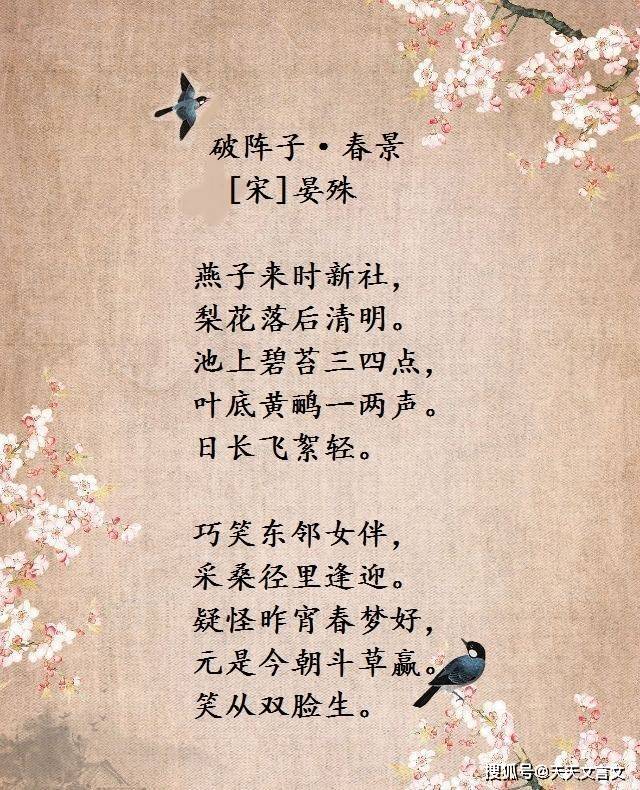 破阵子·春景
[宋]晏殊
燕子来时新社，
梨花落后清明。
池上碧苔三四点，
叶底黄鹂一两声。
日长飞絮轻。
巧笑东邻女伴，
采桑径里逢迎。
疑怪昨宵春梦好，
元是今朝斗草赢。
笑从双脸生。
搜狐号@天天文言文